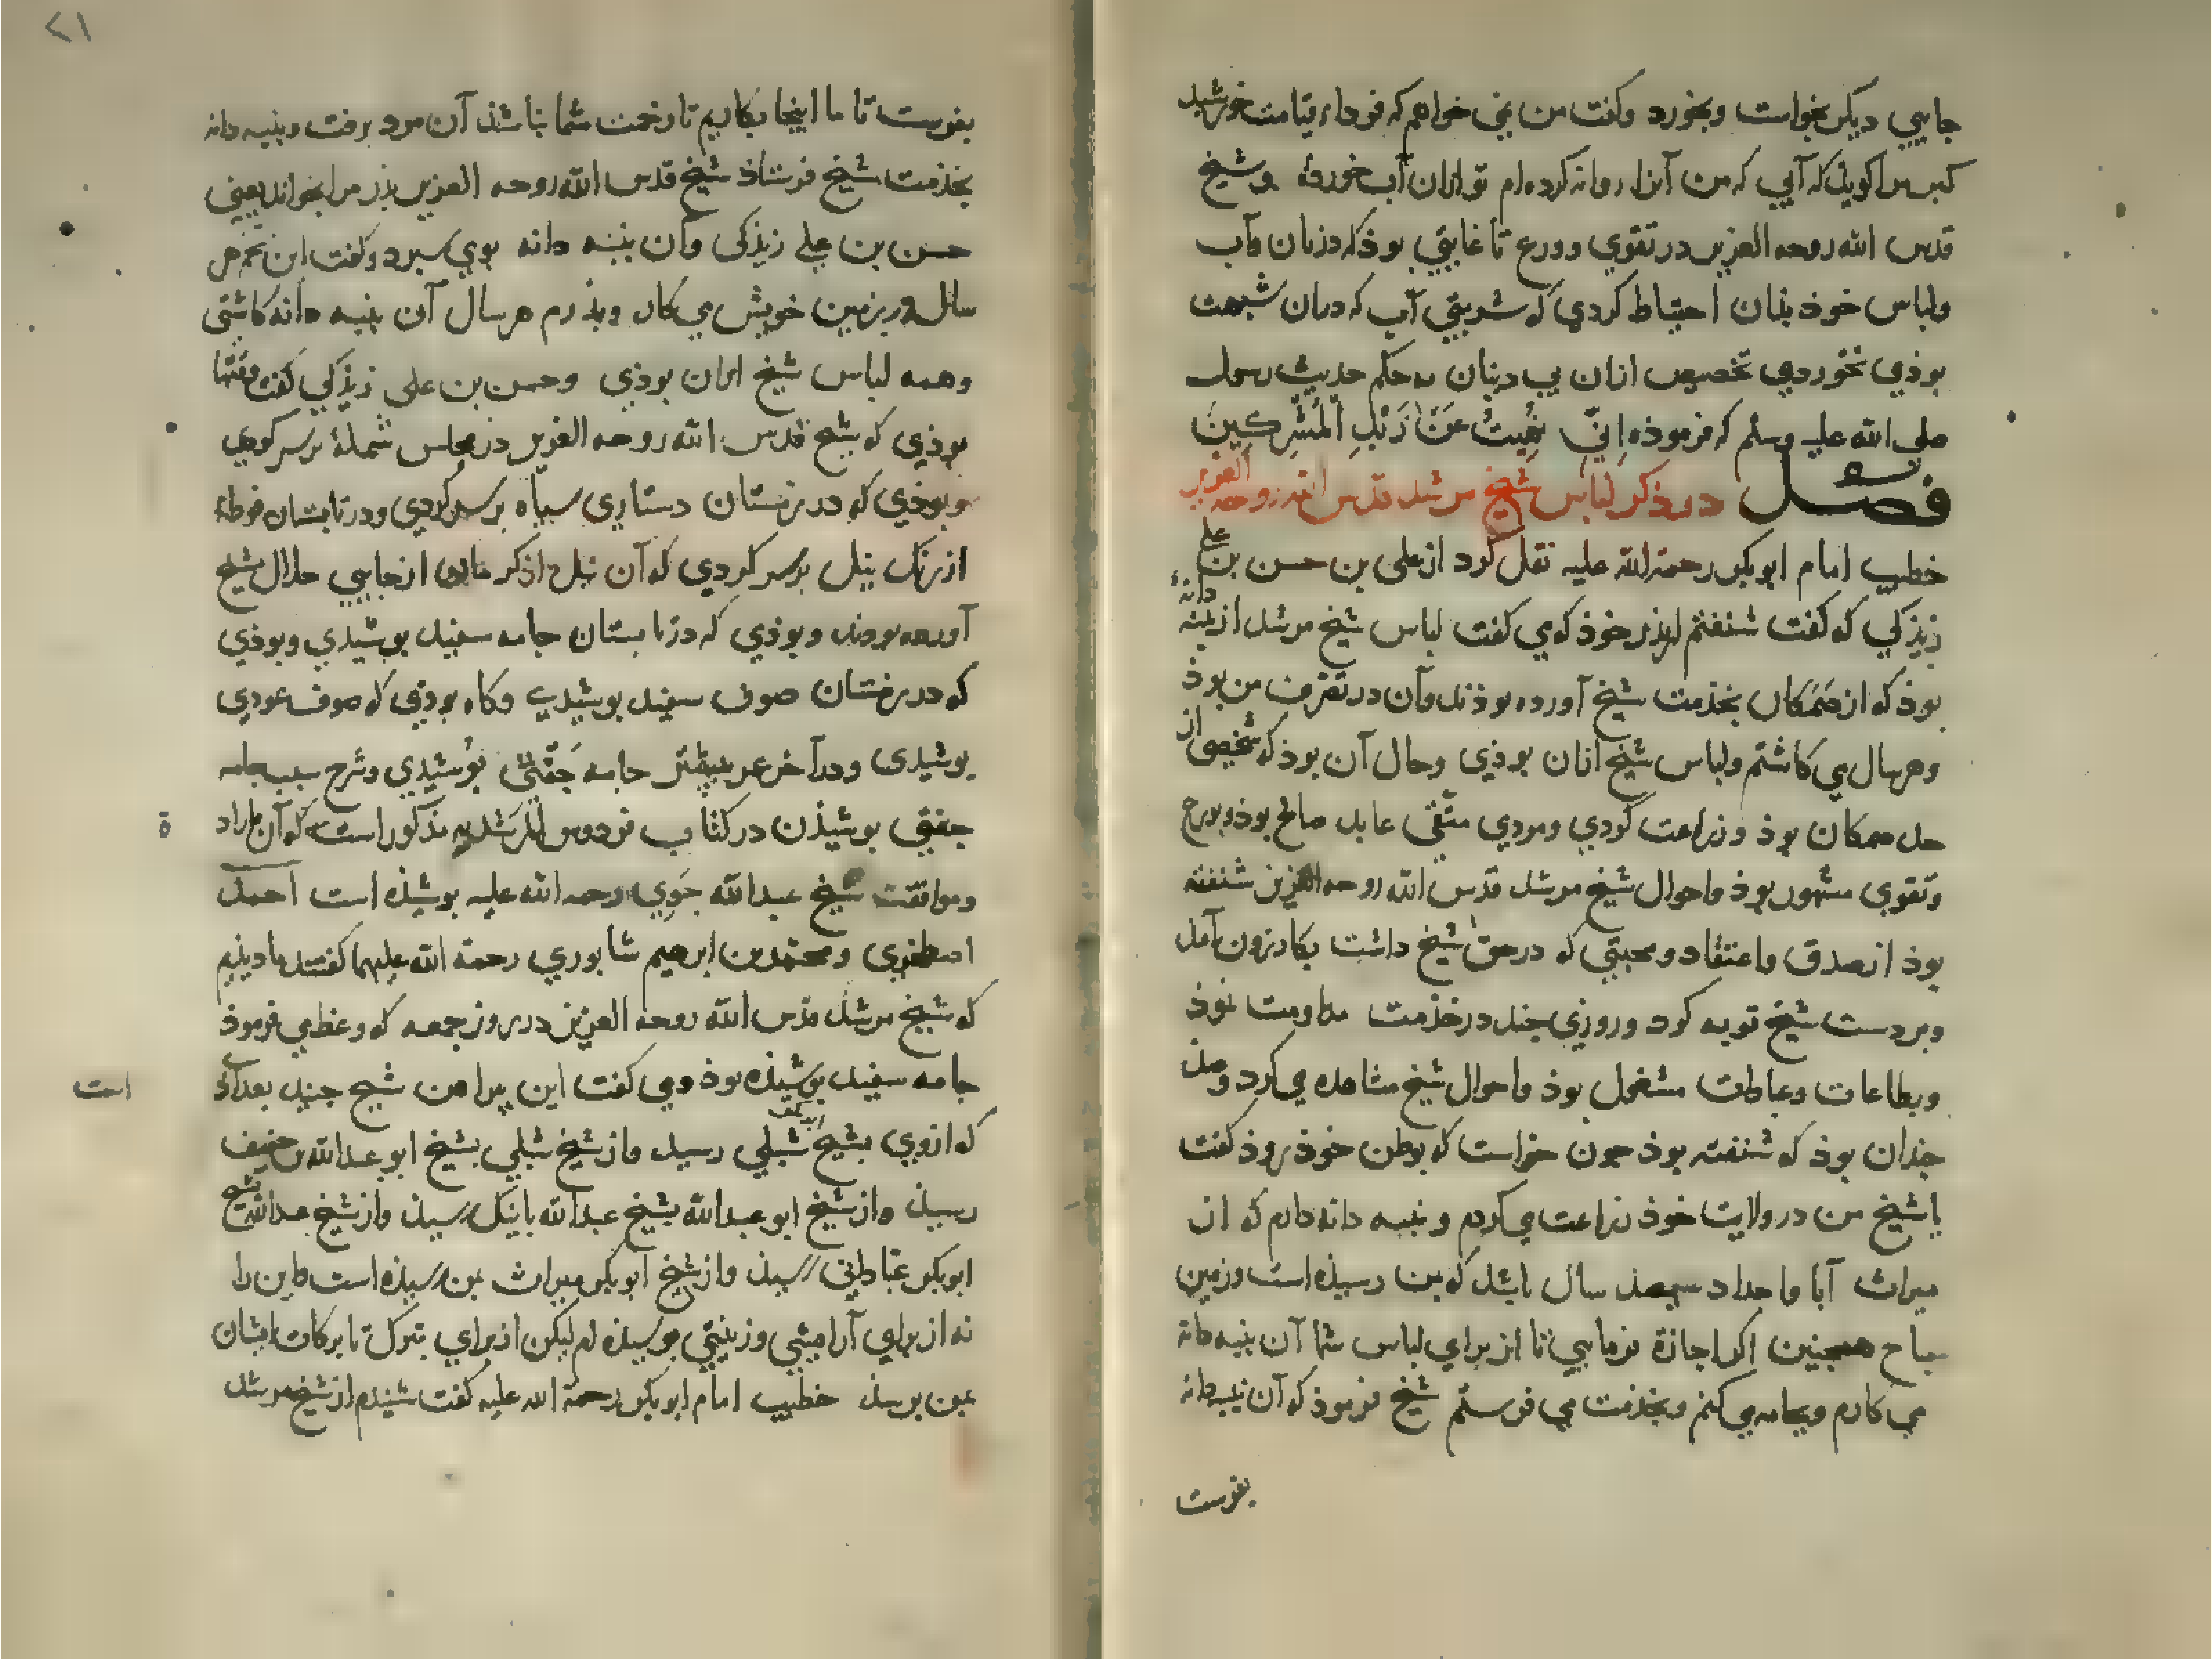 جایی دیکر بخواست وبخورد وکفت من نمی خواهم که فرداء قیامت خورشید
کبر مرا کوید که آبی که من آنرا روانه کرده ام تو ازان آب خوردهٔ وشیخ
قدس الله روحه العزیز در تقوی وورع تا غایتی بوذ که در نان وآب
ولباس خوذ بنان احتیاط کردی که شربتی آب که دران شبهت
بوذی نخوردی تخصیص ازان بی دینان به حکم حدیث رسول
صلی الله علیه وسلم که فرموذه اِنّی نُهِیتُ عَنْ زَبْدِ المُشْرِکِینَ
فصل در ذکر لباس شیخ مرشد قدس الله روحه العزیز
خطیب امام ابوبکر رحمة الله علیه نقل کرد از علی بن حسن بن علی
زیذکی که کفت شنفتم از پذر خوذ که می کفت لباس شیخ مرشد از پنبه دانهٔ
بوذ که از خمکان بخذمت شیخ آورده بوذند وآن در تصرف من بوذ
وهر سال می کاشتم ولباس شیخ ازان بوذی وحال آن بوذ که شخصی از
حد خمکان بوذ وزراعت کردی ومردی متّقی عابد صالح بوذ وبورع
وتقوی مشهور بوذ واحوال شیخ مرشد قدس الله روحه العزیز شنفته
بوذ از صدق واعتقاد ومحبتی که در حق شیخ داشت بکازرون آمذ
وبر دست شیخ توبه کرد وروزی جند در خذمت مداومت نموذ
وبطاعات وعبادات مشغول بوذ واحوال شیخ مشاهده می کرد وصذ
جندان بوذ که شنفته بوذ جون خواست که بوطن خوذ روذ کفت
یا شیخ من در ولایت خوذ زراعت می کردم وپنبه دانه دارم که از
میراث آبا واجداد سیصذ سال باشد که بمن رسیذه است وزمین
مباح همجنین اکر اجازة فرمایی تا از برای لباس شما آن پنبه دانه
می کارم وبجامه می کنم وبخذمت می فرستم شیخ فرموذ که آن پنبه دانه
بفرست
۲۱
بفرست تا ما اینجا بکاریم تا زحمت شما نباشذ آن مرد برفت وپنبه دانه
بخذمت شیخ فرستاذ شیخ قدس الله روحه العزیز پذر مرا بخواند یعنی
حسن بن علی زیذکی وآن پنبه دانه بوی سپرد وکفت این تخم هر
سال در زمین خویش می کار وپذرم هر سال آن پنبه دانه کاشتی
وهمه لباس شیخ ازان بوذی وحسن بن علی زیذکی کفت وقتها
بوذی که شیخ قدس الله روحه العزیز در مجلس شملهٔ بر سر کردی
وبوذی که در زمستان دستاری سیاه بر سر کردی ودر تابستان فوطهٔ
از رنک نیل بر سر کردی که آن نیل از کرمان از جایی حلال شیخ
آورده بودند وبوذی که در تابستان جامه سفید بوشیدی وبوذی
که در زمستان صوف سفید بوشیدی وکاه بوذی که صوف عودی
بوشیدی ودر آخر عمر بیشتر جامه جَفْتَیْ بوشیدی وشرح سبب جامه
جفتی بوشیذن در کتاب فردوس المرشدیه مذکور است که آن بارادة
وموافقت شیخ عبدالله جَوی رحمه الله علیه بوشیذه است احمد
اصطخری ومحمد بن ابرهیم شابوری رحمة الله علیهما کفتند ما دیذیم
که شیخ مرشد قدس الله روحه العزیز در روز جمعه که وعظ می فرموذ
جامه سفید بوشیذه بوذ ومی کفت این پیراهن شیخ جنید بغدادی است
که ازوی بشیخ ابوبکر شبلی رسید واز شیخ شبلی بشیخ ابو عبدالله خفیف
رسیذ واز شیخ ابو عبدالله بشیخ عبدالله بانیک رسیذ واز شیخ عبدالله بشیخ
ابوبکر عبادانی رسیذ واز شیخ ابوبکر میراث بمن رسیذه است واین را
نه از برای آرامشی وزینتی بوشیذه ام لیکن از برای تبرک تا برکات ایشان
بمن برسذ خطیب امام ابوبکر رحمة الله علیه کفت شنیدم از شیخ مرشد